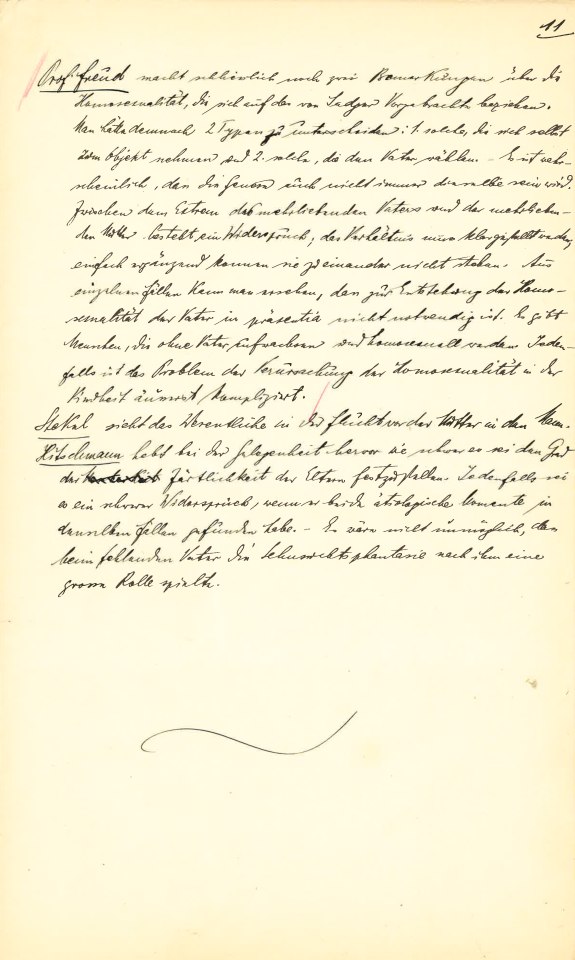 11
Prof. Freud macht schliesslich noch zwei Bemerkungen über die
Homosexualität, die sich auf das von Sadger Vorgebrachte beziehen.
Man hätte demnach 2 Typen zu unterscheiden: 1. solche, die sich selbst
zum Objekt nehmen und 2. solche, die den Vater wählen. – Es ist wahr-
scheinlich, dass die Genese auch nicht immer dieselbe sein wird.
Zwischen dem Extrem des mehrliebenden Vaters und der mehrlieben-
den Mutter besteht ein Widerspruch; das Verhältnis muss klargestellt werden,
einfach ergänzend können sie zueinander nicht stehen. Aus
einzelnen Fällen kann man ersehen, dass zur Entstehung der Homo-
sexualität der Vater in präsentia nicht notwendig ist. Es gibt
Menschen, die ohne Vater aufwachsen und homosexuell werden. Jeden-
falls ist das Problem der Verursachung der Homosexualität in der
Kindheit äusserst kompliziert.
Stekel sieht das Wesentliche in der Flucht vor der Mutter in den Mann.
Hitschmann hebt bei der Gelegenheit hervor wie schwer es sei den Grad
der Zärtlichkeit der Eltern festzustellen. Jedenfalls sei
es ein schwerer Widerspruch, wenn er beide ätiologische Momente in
denselben Fällen gefunden habe. – Es wäre nicht unmöglich, dass
beim fehlenden Vater die Sehnsuchtsphantasie nach ihm eine
grosse Rolle spielte.